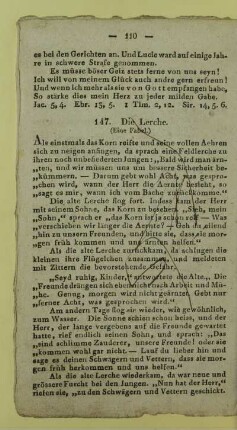 — 110 —
es bei den Gerichten an. Und Lucie ward auf einige Jahre
in schwere Strafe genommen.
Es müsse böser Geiz stets ferne von uns seyn!
Ich will von meinem Glück auch andre gern erfreun!
Und wenn ich mehr als sie von Gott empfangen habe,
So stärke dies mein Herz zu jeder milden Gabe.
Jac. 5, 4. Ebr. 13, 5. 1 Tim. 2, 12. Sir. 14, 5. 6.
147. Die Lerche.
(Eine Fabel.)
Als einstmals das Korn reifte und seine vollen Aehren
sich zu neigen anfingen, da sprach eine Feldlerche zu
ihren noch unbefiederten Jungen: „Bald wird man ärn-
„ten, und wir müssen uns um bessere Sicherheit be-
„kümmern. — Darum gebt wohl Acht, was gespro-
„chen wird, wann der Herr die Aernte besieht, so
„sagt es mir, wann ich vom Bache zurückkomme."
Die alte Lerche flog fort. Indess kam der Herr
mit seinem Sohne, das Korn zu besehen. „Sieh, mein
„Sohn," sprach er „das Korn ist ja schon reif — Was
„verschieben wir länger die Aernte? — Geh du eilend
„hin zu unsern Freunden, und bitte sie, dass sie mor-
„gen früh kommen und uns ärnten helfen!"
Als die alte Lerche zurückkam, da schlugen die
kleinen ihre Flügelchen zusammen, und meldeten
mit Zittern die bevorstehende Gefahr.
„Seyd ruhig, Kinder," antwortete die Alte. „Die
„Freunde drängen sich eben nicht nach Arbeit und Mü-
„he. Genug, morgen wird nicht geärntet. Gebt nur
„ferner Acht, was gesprochen wird."
Am andern Tage flog sie wieder, wie gewöhnlich,
zum Wasser. Die Sonne schien schon heiss, und der
Herr, der lange vergebens auf die Freunde gewartet
hatte, rief endlich seinen Sohn, und sprach: „Das
„sind schlimme Zauderer, unsere Freunde! oder sie
„kommen wohl gar nicht. — Lauf du lieber hin und
sage es deinen Schwägern und Vettern, dass sie mor-
gen früh herkommen und uns helfen."
Als die alte Lerche wiederkam, da war neue und
grössere Furcht bei den Jungen. „Nun hat der Herr,"
riefen sie, „zu den Schwägern und Vettern geschickt.